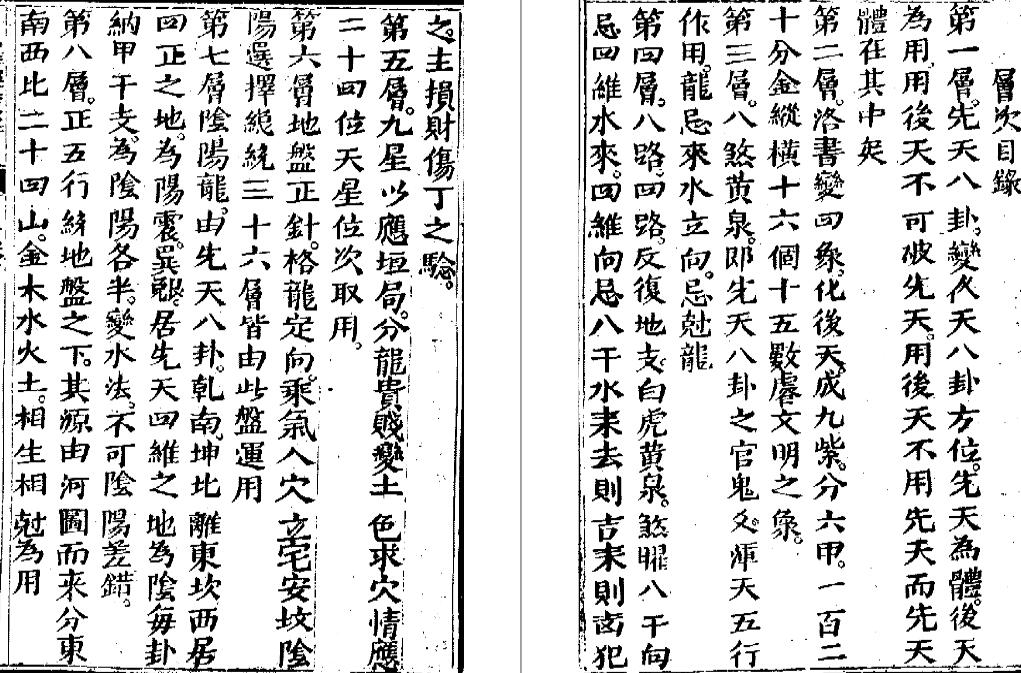 層次目錄
第一層。先天八卦。變后天八卦方位。先天為體。後天
為用。用後天不可破先天。用後天不用先天而先天
體在其中矣
第二層。洛書變四象。化後天。成九紫。分六甲。一百二
十分金縱橫十六個十五數。虙文明之象。
第三層。八煞黃泉。即先天八卦之官鬼爻。渾天五行
作用。龍忌來水立向。忌尅龍
第四層。八路四路。反復地支。白虎黃泉。煞曜八干向
忌四維水來。四維向忌八干水來去則吉來則凶犯
之。主損財傷丁之驗。
第五層。九星以應垣局。分龍貴賤變土色求穴情應
二十四位天星位次取用。
第六層地盤正針。格龍定向。乘氣入穴立宅安坟陰
陽選擇總統三十六層皆由此盤運用
第七層陰陽龍。由先天八卦。乾南。坤北離東坎西居
四正之地。為陽震。巽艮。兌。居先天四維之地為陰每卦
納甲干支。為陰陽各半。變水法。不可陰陽差錯。
第八層。正五行統地盤之下。其源由河圖而來分東
南西北二十四山。金木水火土。相生相尅為用